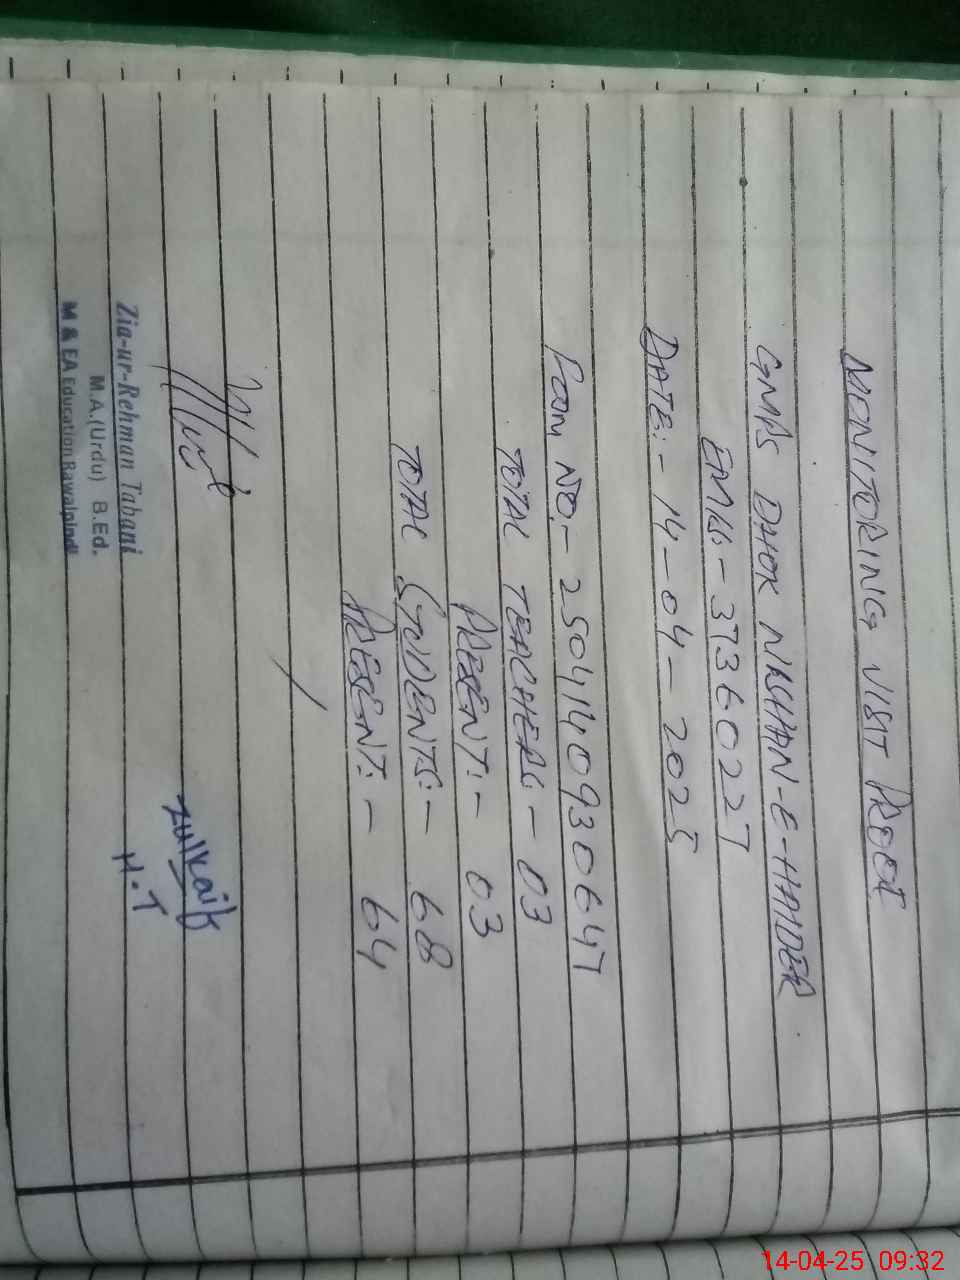 MONITORING VISIT PROOF
GMPS DHOK NISHAN-E-HAIDER
EMIS:- 37360227
DATE:- 14-04-2025
Form NO:- 2504140930647
TOTAL TEACHERS:- 03
PRESENT:- 03
TOTAL STUDENTS:- 68
PRESENT:- 64
Zulkaif
H.T
Zia-ur-Rehman Tabani
M.A.(Urdu) B.Ed.
M & EA Education Rawalpindi
14-04-25 09:32